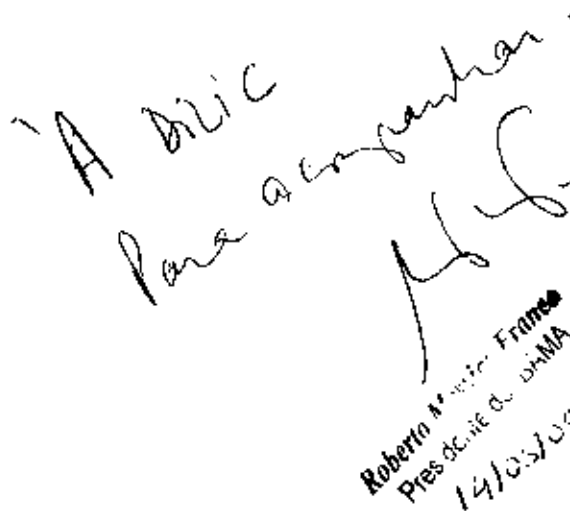 À DILIC
Para acompanhar.
Roberto Franco
Presidente